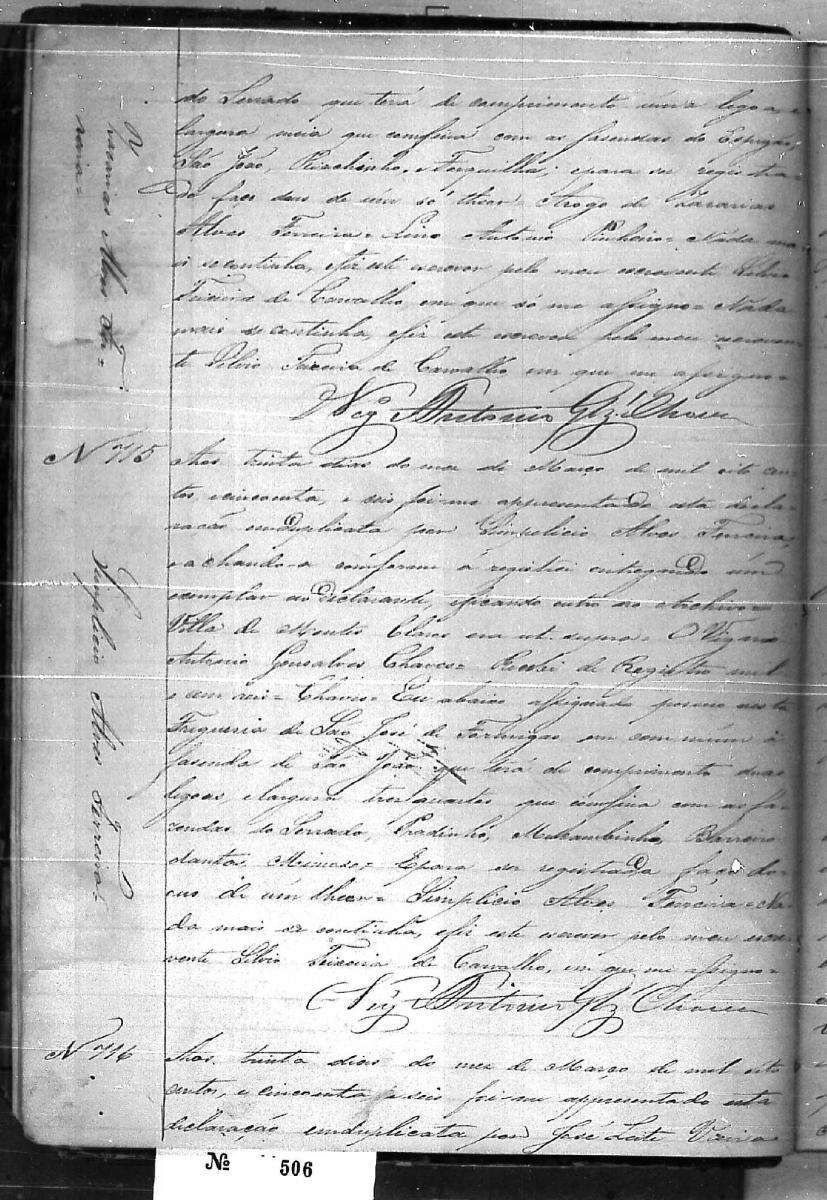 do Serrado que terá de comprimento uma legoa, e
largura meia que comfina com as fasendas do Espigão,
São João, Riachinho, Forquilha; epara ser registra-
do faço dous de um só theor = Arogo de Zacarias
Alves Ferreira = Lino Antonio Pinheiro = Nada ma-
is secontinha, efiz este escrever pelo meu escrevente Silvio
Teixeira de Carvalho, em que só me assigno = Nada
mais se continha, efiz este escrever pelo meu escreven-
te Silvio Teixeira de Carvalho, em que me assigno =
O Vigº Antonio Glz' Chaves
Zacarias Alves Fer-
reira =
N 715
Aos trinta dias do mez de Março de mil oito cen-
tos, ecincoenta, e seis foi-me appresentado esta decla-
ração emduplicata por Simplicio Alves Ferreira,
e achando-a comforme a registrei entregando um
exemplar ao declarante, eficando outro no Archivo =
Villa de Montes Claros era ut supra = O Vigario
Antonio Gonsalves Chaves = Recebi de Registro mil
e cem reis = Chaves = Eu abaixo assignado possuo nesta
Freguesia de São José de Formigas em commum a
fasenda de São João que terá de comprimento duas
legoas, elargura tres quartos que comfina com as fa-
zendas do Serrado, Pradinho, Mucambinho, Barreiro
dantas Mimoso = Epara ser registrada faço do-
us de um theor = Simplicio Alves Ferreira = Na-
da mais se continha, efiz este escrever pelo meu escre-
vente Silvio Teixeira de Carvalho, em que me assigno =
O Vigº Antonio Glz' Chaves
Simplicio Alves Ferreira =
N 716
Aos trinta dias do mez de Março de mil oito
centos, e cincoenta e seis foi-me appresentado esta
declaração emduplicata por José Leite Vieira
Nº 506